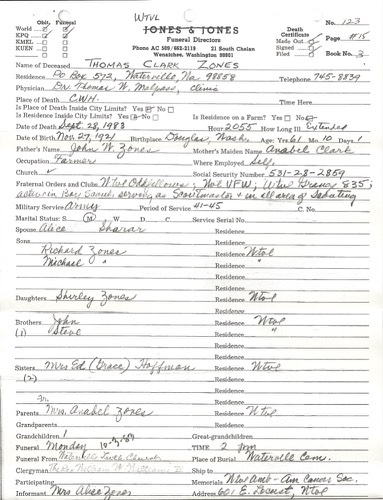 WTVL
Obit. Funeral
World
KPQ
KMEL
KUEN
JONES & JONES
Funeral Directors
Phone AC 509/662-2119 21 South Chelan
Wenatchee, Washington 98801
Death Certificate
Made Out
Signed
Filed
No. 123
Page #15
Book No. 3
Name of Deceased THOMAS CLARK ZONES
Residence PO Box 572, Waterville, Wa 98858 Telephone 745-8839
Physician Dr. Thomas W. Clinic
Place of Death CWH Time Here
Is Place of Death Inside City Limits? Yes No
Is Residence Inside City Limits? Yes No Is Residence on a Farm? Yes No
Date of Death Sept 28, 1983 Hour 2055 How Long Ill Extended
Date of Birth Nov. 27, 1921 Birthplace Douglas, Wash. Age: Yrs. 61 Mo. 10 Days 1
Father's Name John W. Zones Mother's Maiden Name Anabel Clark
Occupation Farmer Where Employed Self
Church Social Security Number 531-28-2859
Fraternal Orders and Clubs Wtvl Oddfellows; Wtvl VFW; Wtvl Grange 835;
active in Boy Scouts serving as Scoutmaster & in all area of Scouting
Military Service Army Period of Service 41-45 C. No.
Marital Status: S M W D C Service Serial No.
Spouse Alice Residence
Sons Residence
Richard Zones Residence Wtvl
Michael " Residence "
Residence
Daughters Shirley Zones Residence Wtvl
Residence
Brothers John Residence Wtvl
(1) Steve Residence "
Residence
Sisters Mrs Ed (Grace) Hoffman Residence Wtvl
(2) Residence
Residence
Parents: Mrs. Anabel Zones Residence Wtvl
Grandparents Residence
Grandchildren: 1 Great-grandchildren:
Funeral Monday TIME 2 pm
Funeral From Waterville Luth Church Place of Burial Waterville Cem.
Clergyman Ship to
Participating Memorials Wtvl Amb - Am Cancer Soc.
Informant Mrs Alice Zones Address 601 E. Locust, Wtvl